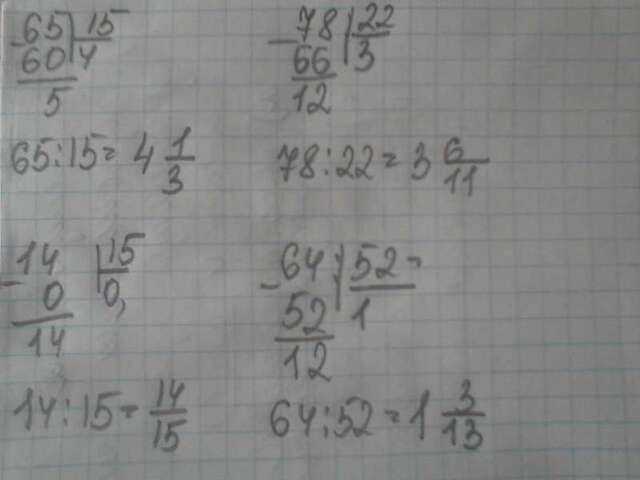 65 | 15
- 60 | 4
5
65:15= 4 1/3
78 | 22
- 66 | 3
12
78:22= 3 6/11
14 | 15
- 0 | 0,
14
14:15= 14/15
64 | 52
- 52 | 1
12
64:52=1 3/13